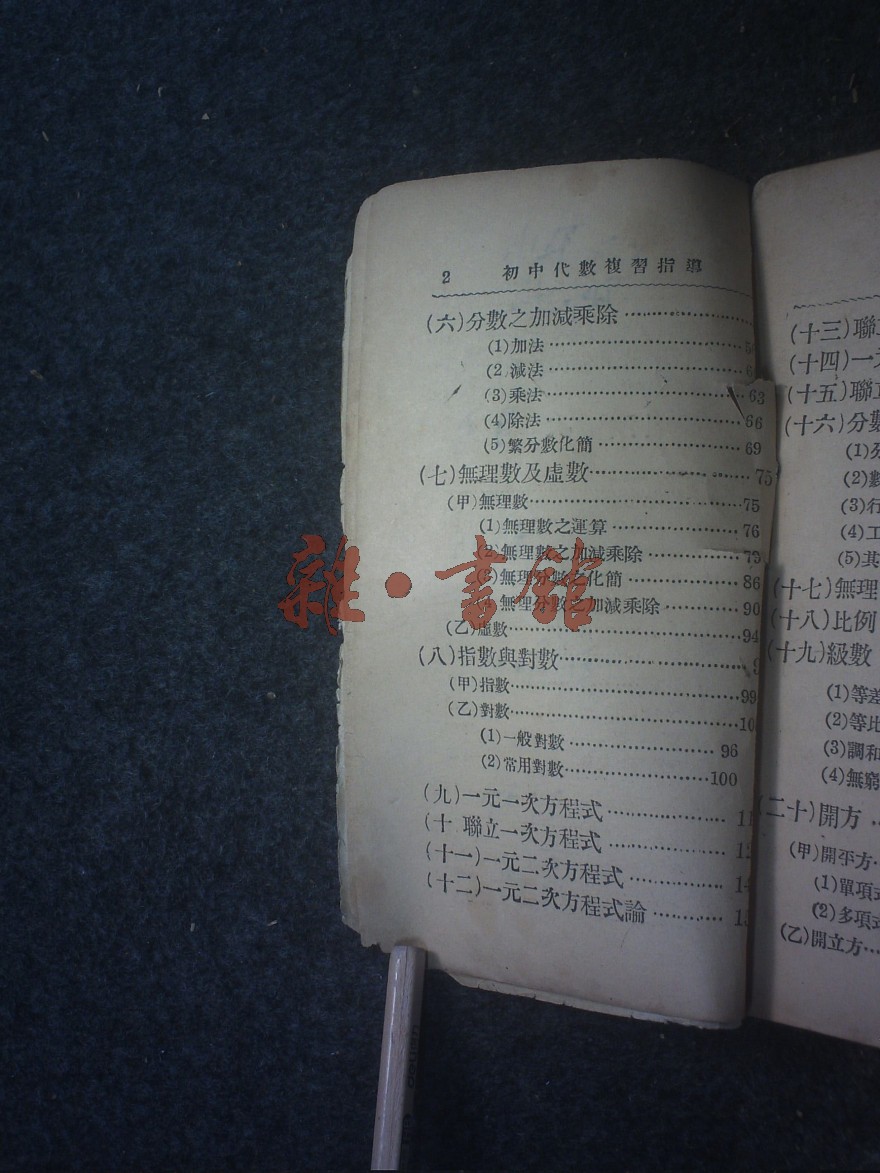 2 初中代數複習指導
(六)分數之加減乘除
(1)加法
(2 減法
(3)乘法 63
(4)除法 66
(5)繁分數化簡 69
(七)無理數及虛數 75
(甲)無理數 75
(1)無理數之運算 76
(2)無理數之加減乘除
(3)無理分數之化簡 86
無理分數之加減乘除 90
(乙)虛數 94
(八)指數與對數
(甲)指數 99
(乙)對數
(1)一般對數 96
(2)常用對數 100
(九)一元一次方程式
(十 聯立一次方程式
(十一)一元二次方程式
(十二)一元二次方程式論
(十三)聯
(十四)一
(十五)聯
(十六)分
(1)
(2)
(3)行
(4)工
(5)其
(十七)無理
(十八)比例
(十九)級數
(1)等差
(2)等比
(3)調和
(4)無窮
(二十)開方
(甲)開平方
(1)單項
(2)多項
(乙)開立方
雜·書館